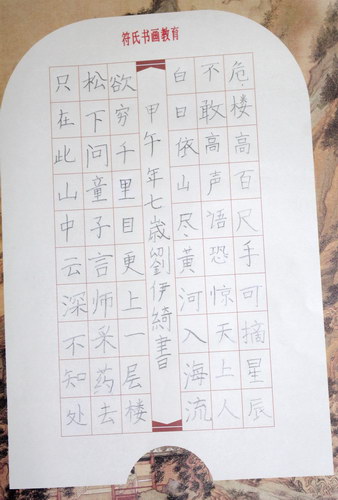 符氏书画教育
危楼高百尺手可摘星辰
不敢高声语恐惊天上人
白日依山尽黄河入海流
甲午年七歲劉伊綺書
欲穷千里目更上一层楼
松下问童子言师采药去
只在此山中云深不知处